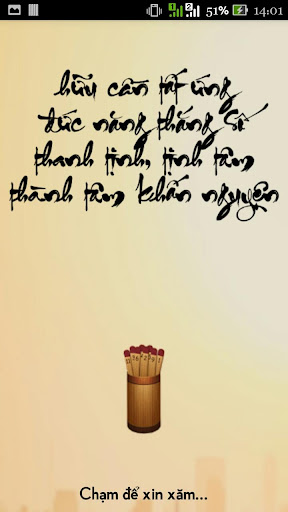 51% 14:01
hữu cầu tất ứng
đức năng thắng số
thanh tịnh, tịnh tâm
thành tâm khấn nguyện
Chạm để xin xăm...